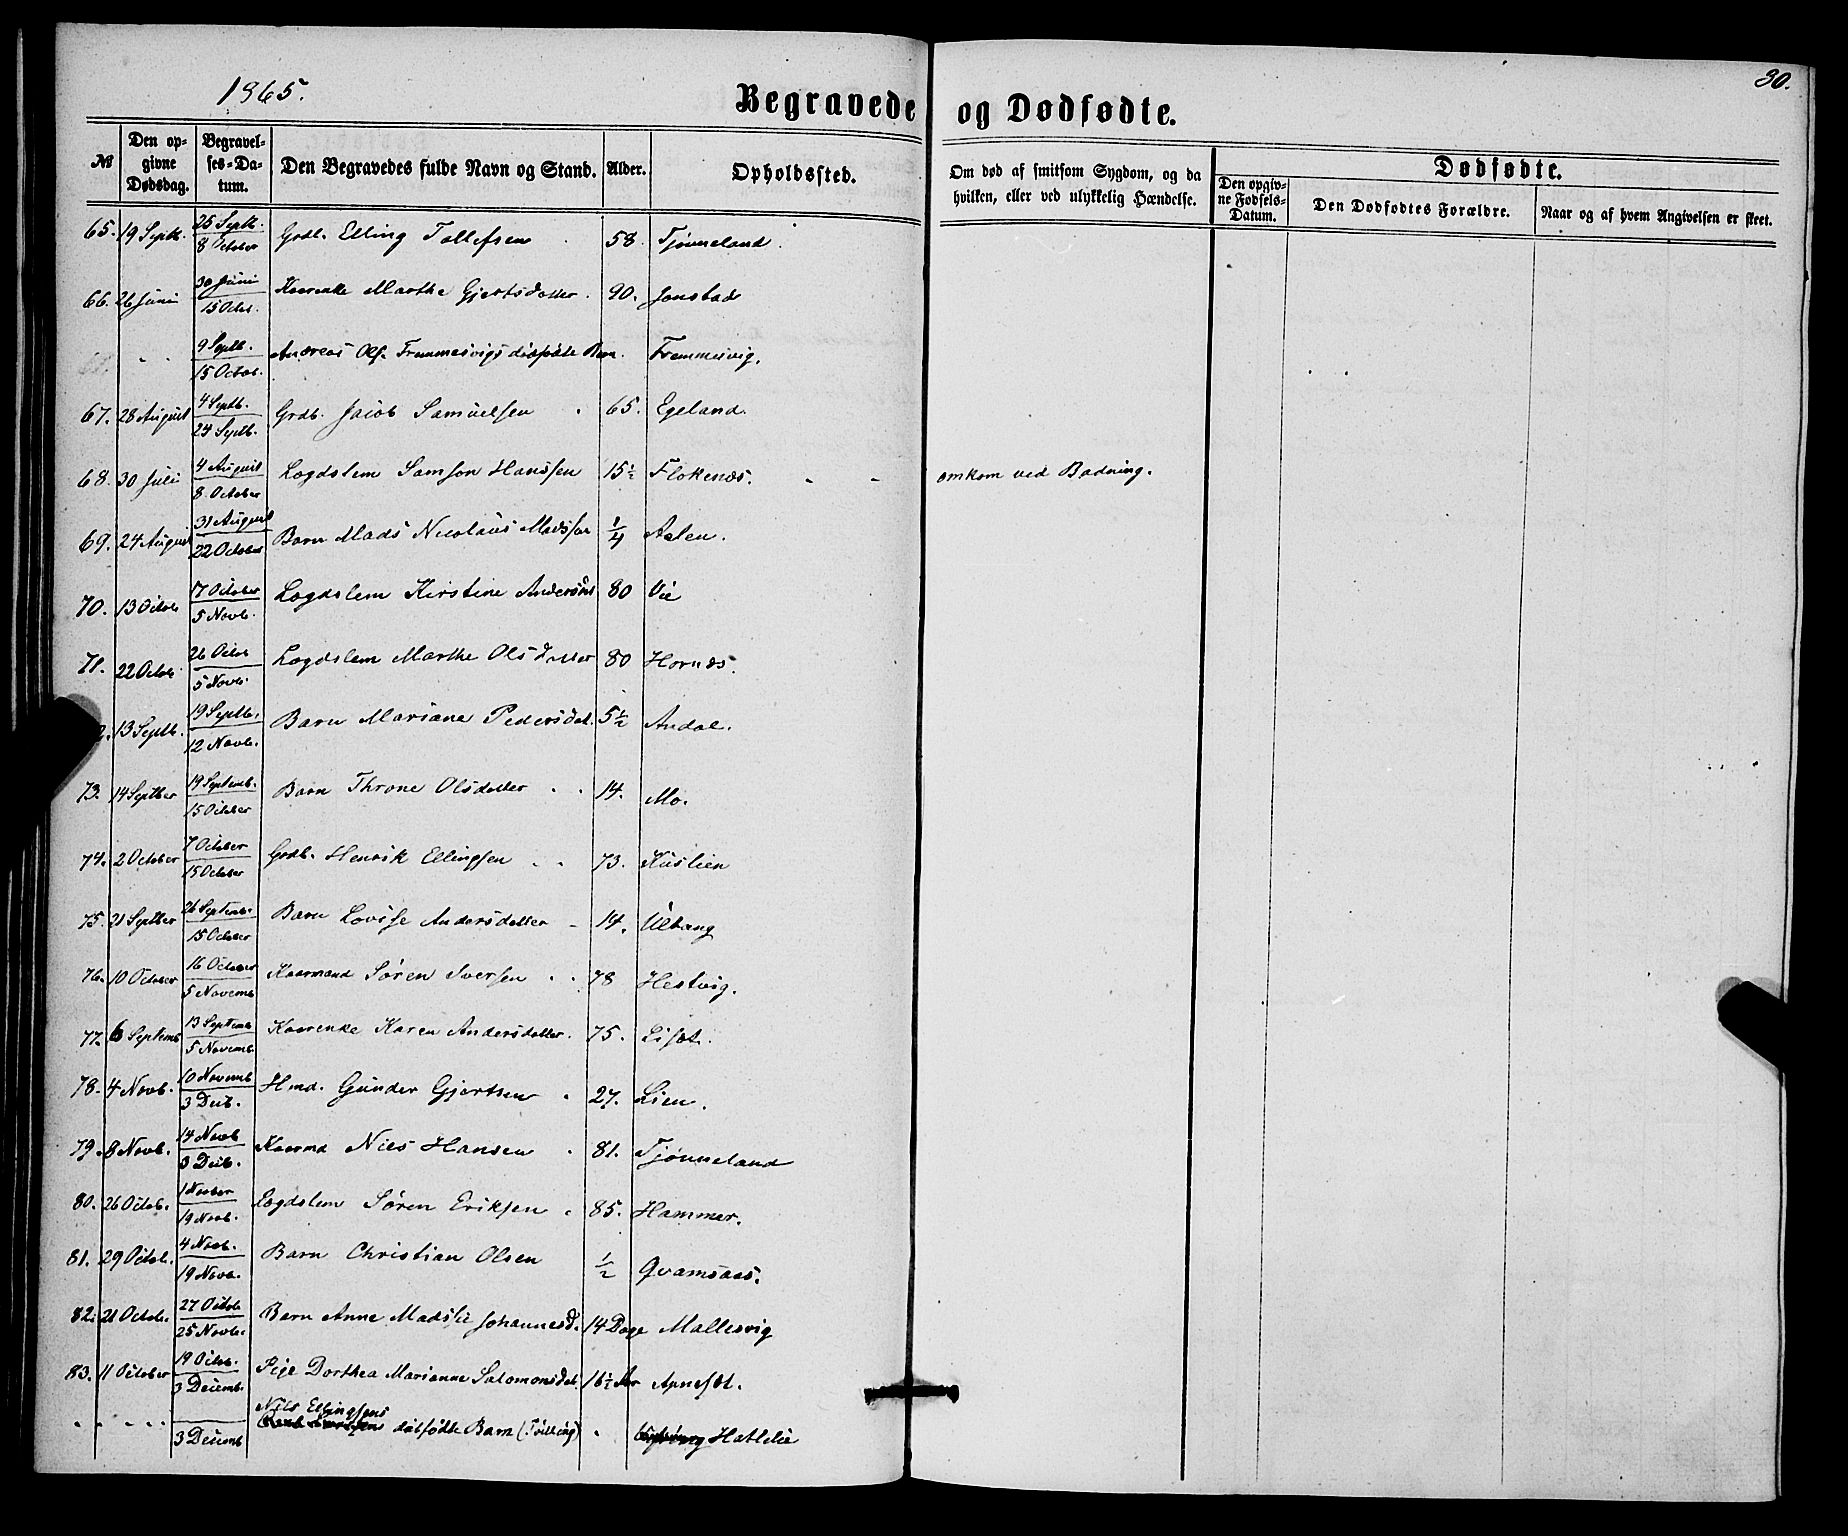 1865.
30.
Begravede og Dødfødte.
No Den opgivne Dødsdag. Begravelses-Datum. Den Begravedes fulde Navn og Stand. Alder. Opholdssted. Om død af smitsom Sygdom, og da hvilken, eller ved ulykkelig Hændelse. Dødfødte. Den opgivne Fødsels-Datum. Den Dødfødtes Forældre. Naar og af hvem Angivelsen er skeet.
65. 19 Septb. 25 Septb. 8 October Grdb. Elling Tollefsen 58. Tjønneland.
66. 26 Juni 30 Juni 15 Octob. Kaarenke Marthe Gjertsdatter. 90. Jonstad
9 Septb. 15 Octob. Andreas Ols. Fremmesvigs dødfødte Barn. Fremmesvig.
67. 28 August 4 Septb. 24 Septb. Grdb. Jacob Samuelsen 65. Egeland.
68. 30 Juli 4 August 8 October Lægdslem Samson Hanssen 15½ Flokenæs. omkom ved Badning.
69. 24 August 31 August 22 October Barn Mads Nicolaus Madssen ¼ Aalen.
70. 13 Octob 17 October 5 Novb. Lægdslem Kirstine Andersdt 80 Vie
71. 22 Octob 26 Octob 5 Novb. Lægdslem Marthe Olsdatter 80 Hornæs.
2. 13 Septb. 19 Septb. 12 Novb. Barn Mariane Pedersdat. 5½ Andal.
73. 14 Septber 19 Septemb. 15 October Barn Throne Olsdatter 14. Mo.
74. 2 October 7 October 15 October Grdb. Henrik Ellingsen 73. Kuslien
75. 21 Septber 26 Septemb. 15 October Barn Lovise Andersdatter 14. Ultang
76. 10 October 16 October 5 Novemb Kaarmand Søren Iversen 78 Hestvig.
77. 6 Septemb 13 Septemb 5 Novemb. Kaarenke Karen Andersdatter. 75. Lisæt.
78. 4 Novb. 10 Novemb 3 Decb. Hmd. Gunder Gjertsen 27. Lien.
79. 8 Novb. 14 Novb 3 Decb. Kaarmd Niels Hansen 81. Tjønneland
80. 26 Octob. 1 Novber 19 Novb. Lægdslem Søren Eriksen 85. Hammer.
81. 29 Octob. 4 Novb. 19 Novb. Barn Christian Olsen ½ Qvamsaas.
82. 21 Octob. 27 Octob 25 Novb. Barn Anne Madslie Johannesd. 14 Dage Mallesvig
83. 11 October 19 Octob. 3 Decemb. Pige Dorthea Marianne Salomonsdat. 16½ Ar Apnesæt.
Nils Ellingsens
3 Decemb dødfødte Barn (Tvilling) Hatlelie